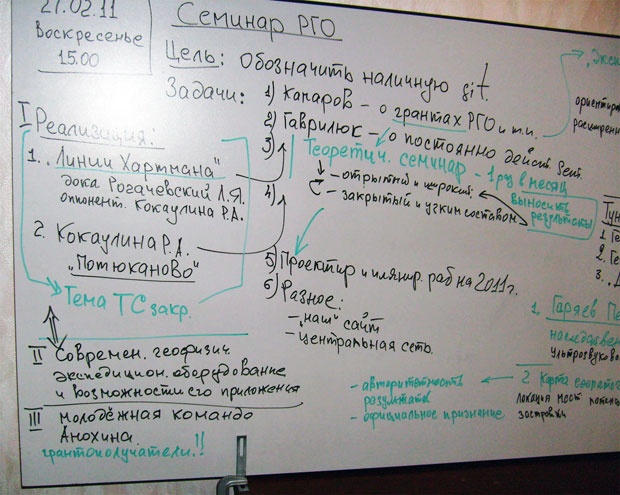 27.02.11
Воскресенье
15.00
Семинар РГО
Цель: Обозначить наличную sit.
Задачи: 1) Капаров – о грантах РГО и т.п.
2) Гаврилюк – о постоянно действ. Sem.
3)
Теоретич. семинар – 1 раз в месяц
→ открытый и широкий
→ закрытый и узким составом
выносить
результаты
4)
5) Проектир и планир. раб на 2011г.
6) Разное:
– „наш" сайт
– центральная сеть.
I Реализация:
1. „Линии Хартмана"
дока Рогачевский Л.Я.
оппонент. Кокаулина Р.А.
2. Кокаулина Р.А.
„Потюканово"
Тема ТС закр.
II Современ. геофизич.
экспедицион. оборудование
и возможности его приложения
III Молодёжная командо
Анохина.
грантополучатели.!!
„Экс
ориентиро
расширенн
Тун
1. Ге
2. Ге
3.
1. Гаряев Пе
наследовен
Ультрозвуково
2 Карта
локация мест потен
застройки
– авторитетность
результата
– официальное признание